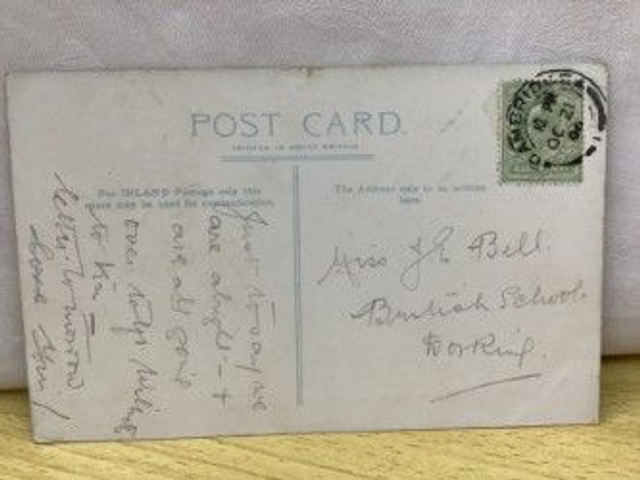 POST CARD
PRINTED IN GREAT BRITAIN
For INLAND Postage only this
space may be used for communication.
The Address only to be written
here.
CAMBRIDGE
Miss J E Bell.
British Schools
Dorking.
Just to say we
are alright - +
are all going
over
to
letter tomorrow
love